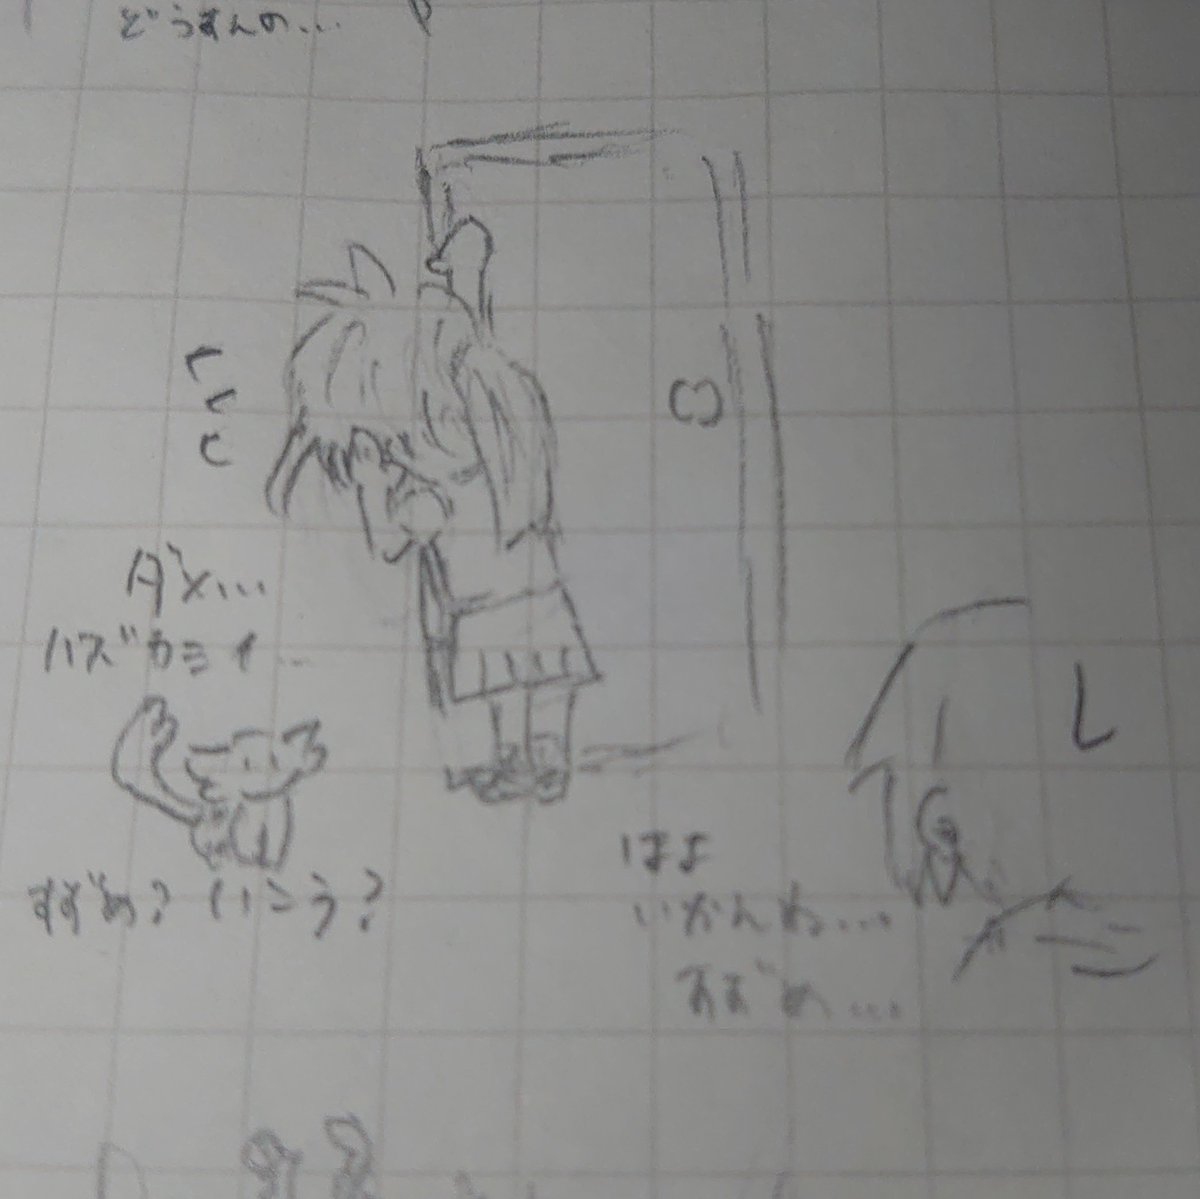 どうすんの…
ダメ…
ハズカシイ…
すずめ?いこう?
はよ
いかんわ…
すずめ…